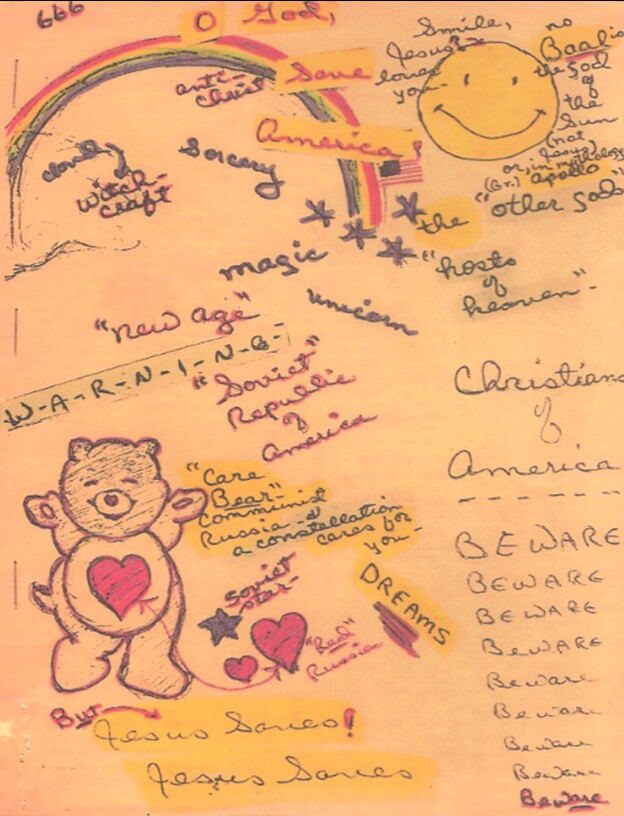 666
O God,
Save
America!
anti-
christ
Sorcery
Witch-
craft
magic
unicorn
"new age"
W-A-R-N-I-N-G-
"Soviet"
Republic
of
america
Smile,
Jesus?
loves
you-
no
Baal is
the god
of
the
Sun
(not
Jesus)
or, in mythology
(Gr.) apollo
the "other gods"
"hosts
of
heaven"-
Christians
of
America
BEWARE
BEWARE
BEWARE
BEWARE
Beware
Beware
Beware
Beware
Beware
"Care
Bear"-
Communist
Russia-&
a constellation
cares for
you-
DREAMS
Soviet
star-
"Red"
Russia
But
Jesus Saves!
Jesus Saves